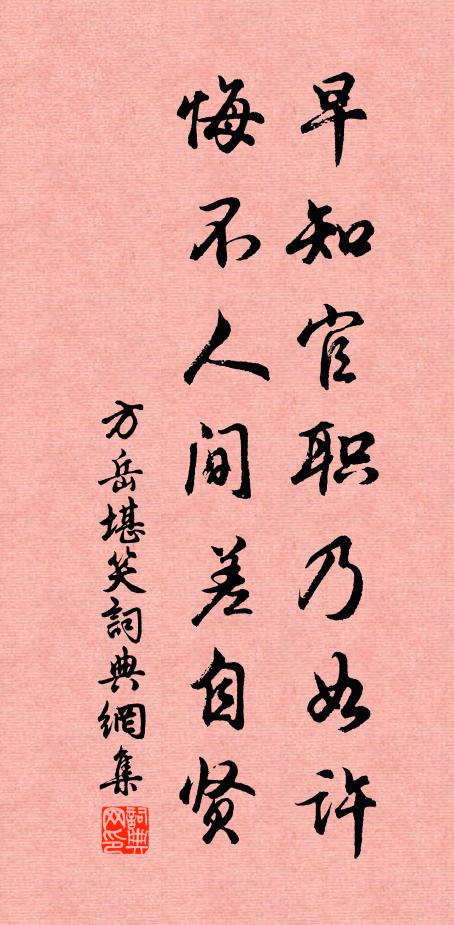 早知官职乃如许
悔不人间差自贤
方岳堪笑詞典網集
詞典网印